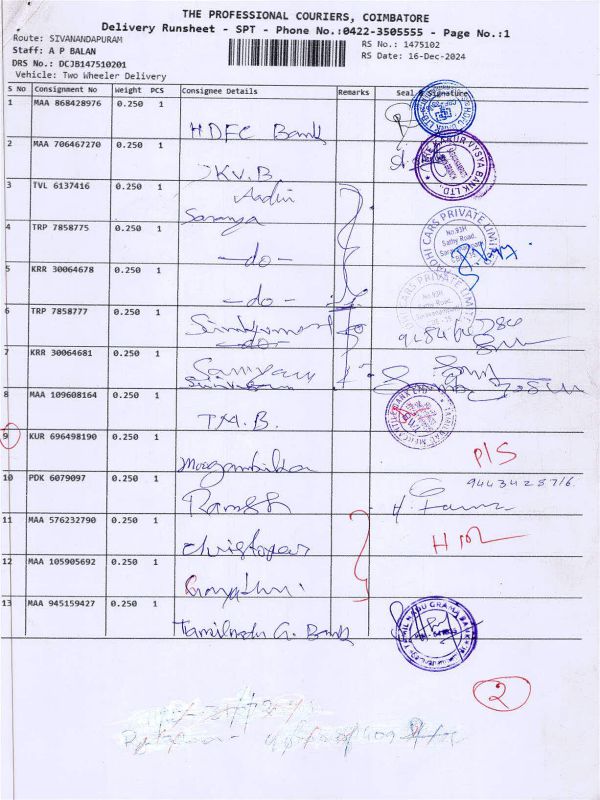 THE PROFESSIONAL COURIERS, COIMBATORE
Delivery Runsheet - SPT - Phone No.:0422-3505555 - Page No.:1
Route: SIVANANDAPURAM
RS No.: 1475102
Staff: A P BALAN
RS Date: 16-Dec-2024
DRS No.: DCJB147510201
Vehicle: Two Wheeler Delivery
S No Consignment No Weight PCS Consignee Details Remarks Seal & Signature
1 MAA 868428976 0.250 1
HDFC Bank
2 MAA 706467270 0.250 1
KV.B.
THE KARUR VYSYA BANK LTD.
3 TVL 6137416 0.250 1
Saranya
4 TRP 7858775 0.250 1
-do-
CARS PRIVATE LIMITED
No.93H
Sathy Road,
5 KRR 30064678 0.250 1
-do-
CARS PRIVATE LIMITED
No.93H
Sathy Road,
6 TRP 7858777 0.250 1
-do-
7 KRR 30064681 0.250 1
8 MAA 109608164 0.250 1
T.M.B.
9 KUR 696498190 0.250 1
P/S
10 PDK 6079097 0.250 1
Ramesh
11 MAA 576232790 0.250 1
Christopher
12 MAA 105905692 0.250 1
Gayathri
13 MAA 945159427 0.250 1
Tamilnadu G. Bank
TAMIL NADU GRAMA BANK
2